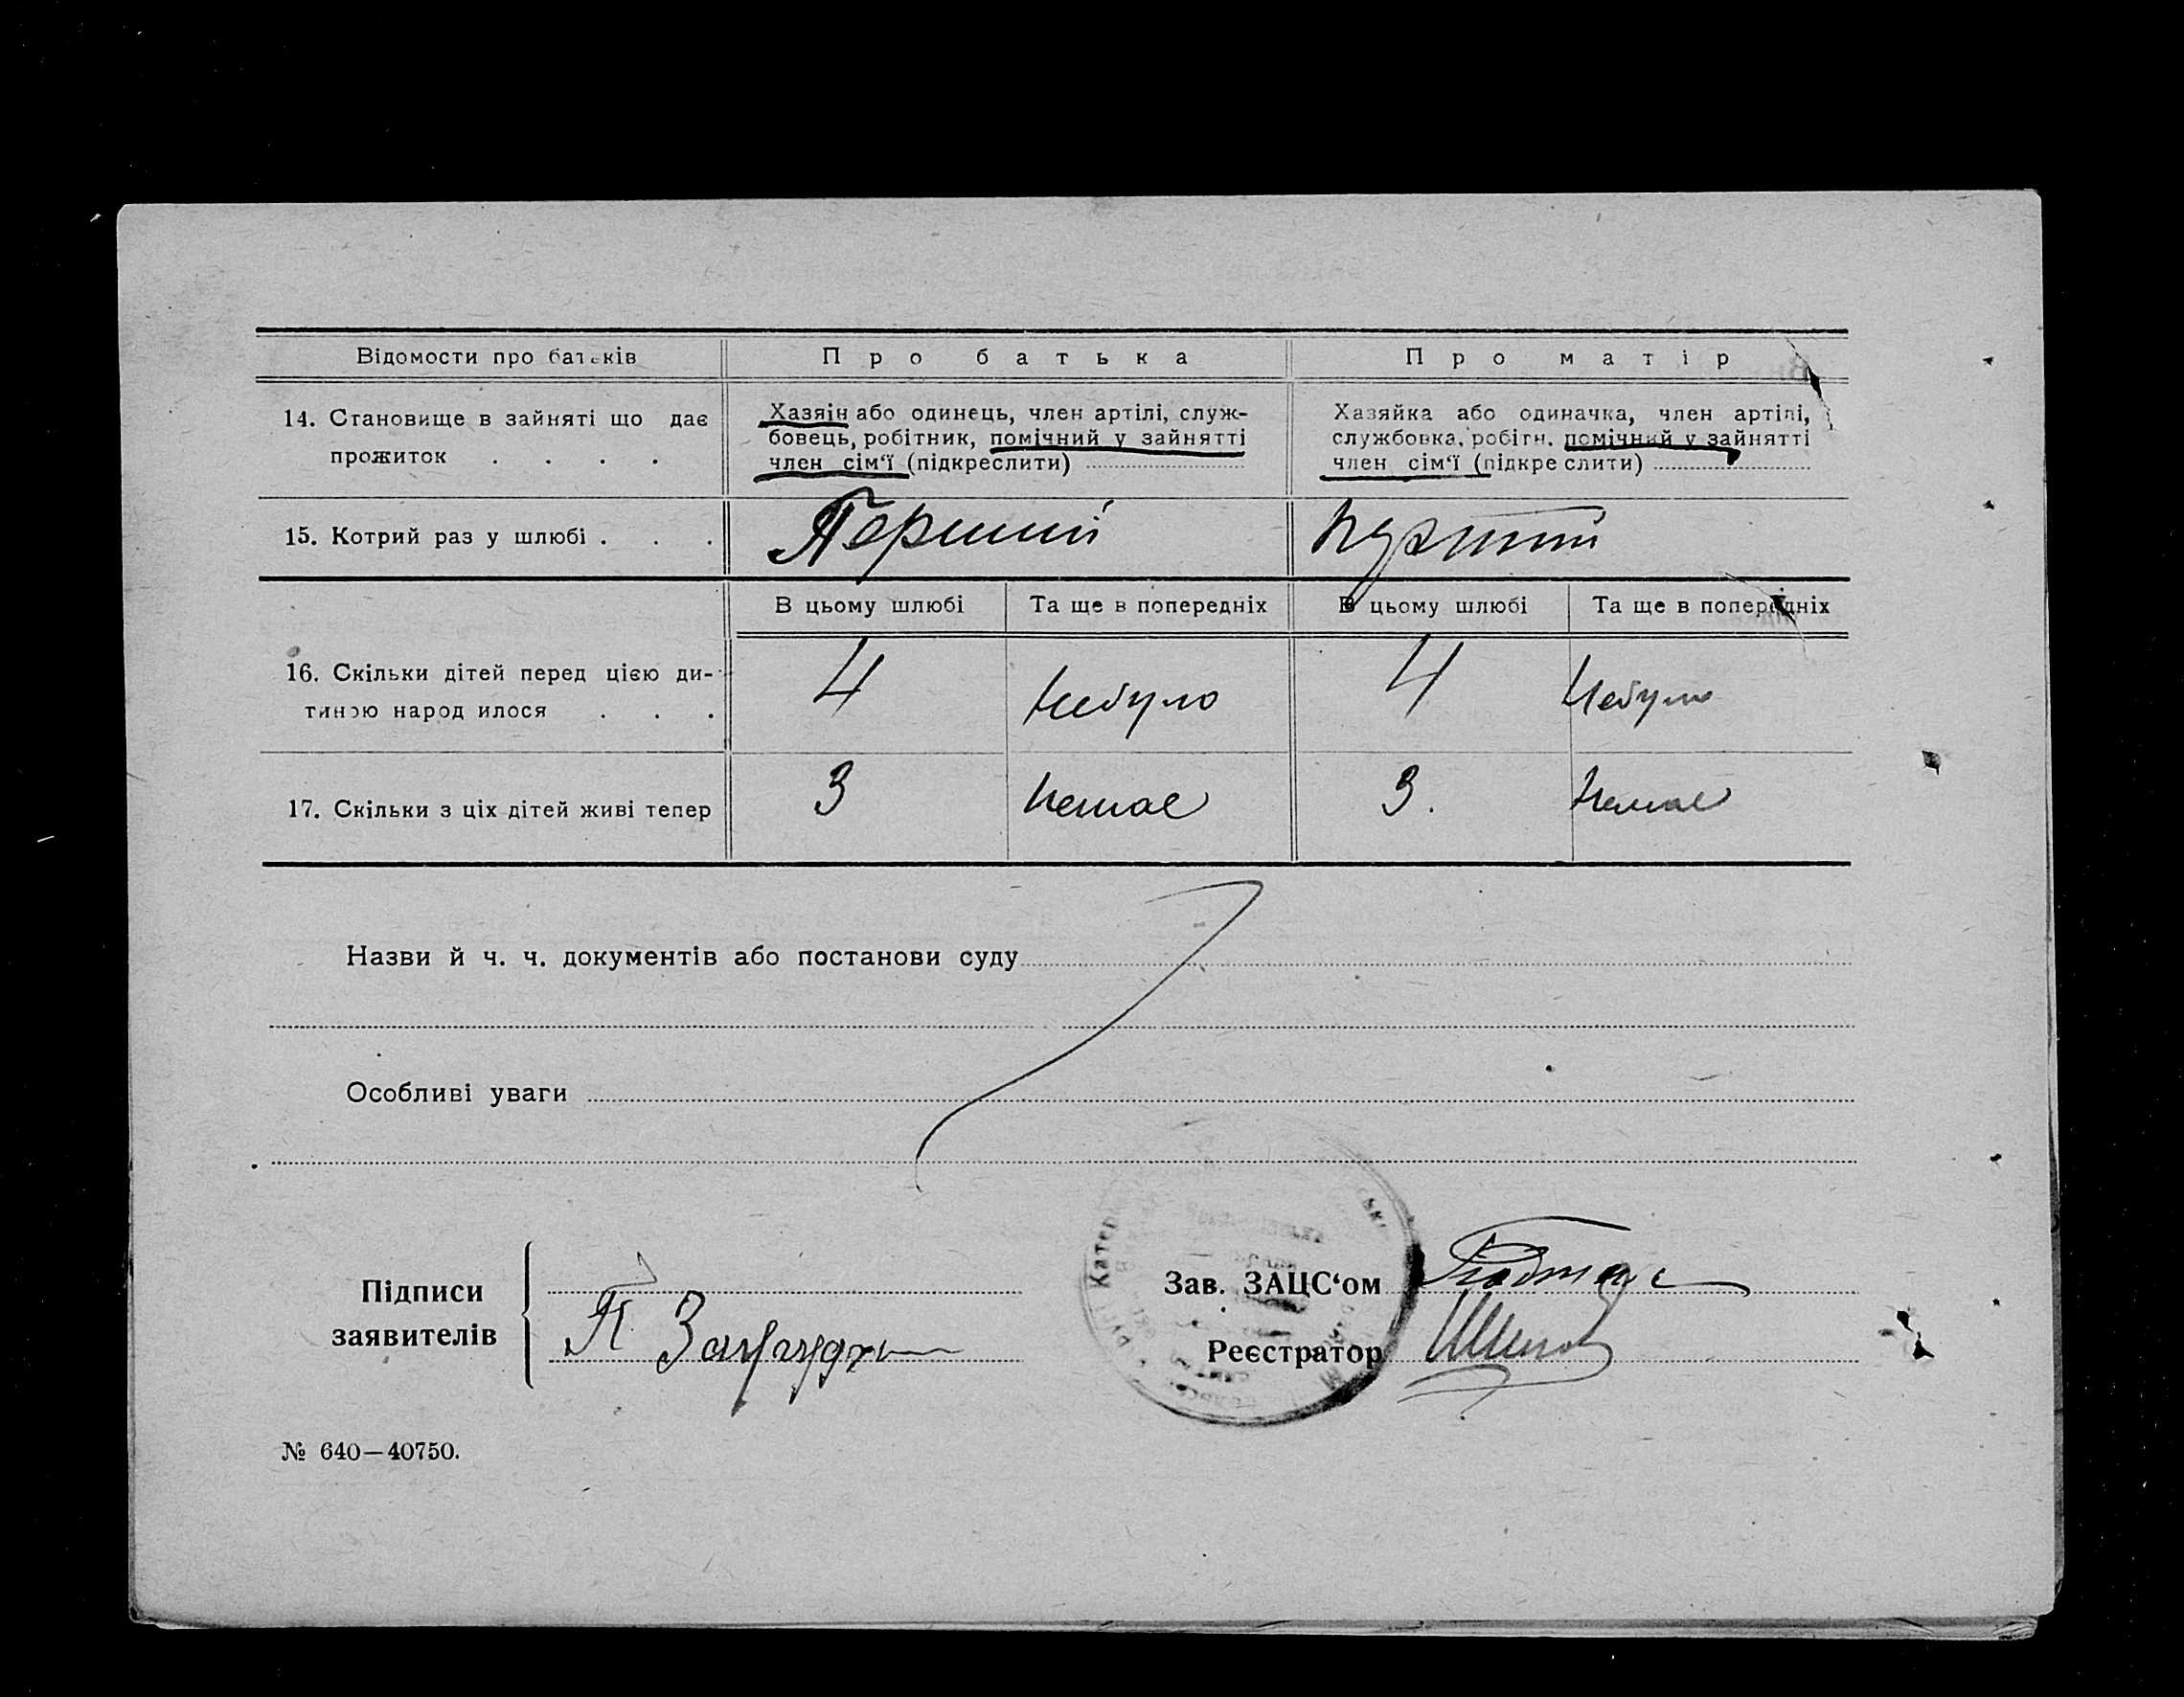 Відомости про батьків
Про батька
Про матір
14. Становище в зайняті що дає
прожиток
Хазяїн або одинець, член артілі, служ-
бовець, робітник, помічний у зайнятті
член сім'ї (підкреслити)
Хазяйка або одиначка, член артілі,
службовка, робітн. помічний у зайнятті
член сім'ї (підкреслити)
15. Котрий раз у шлюбі
Перший
В цьому шлюбі
Та ще в попередніх
В цьому шлюбі
Та ще в попередніх
16. Скільки дітей перед цією ди-
тиною народилося
4
Небуло
4
Небуло
17. Скільки з ціх дітей живі тепер
3
Немає
3.
Немає
Назви й ч. ч. документів або постанови суду
Особливі уваги
Підписи
заявителів
П
Зав. ЗАЦС'ом
Реєстратор
№ 640—40750.